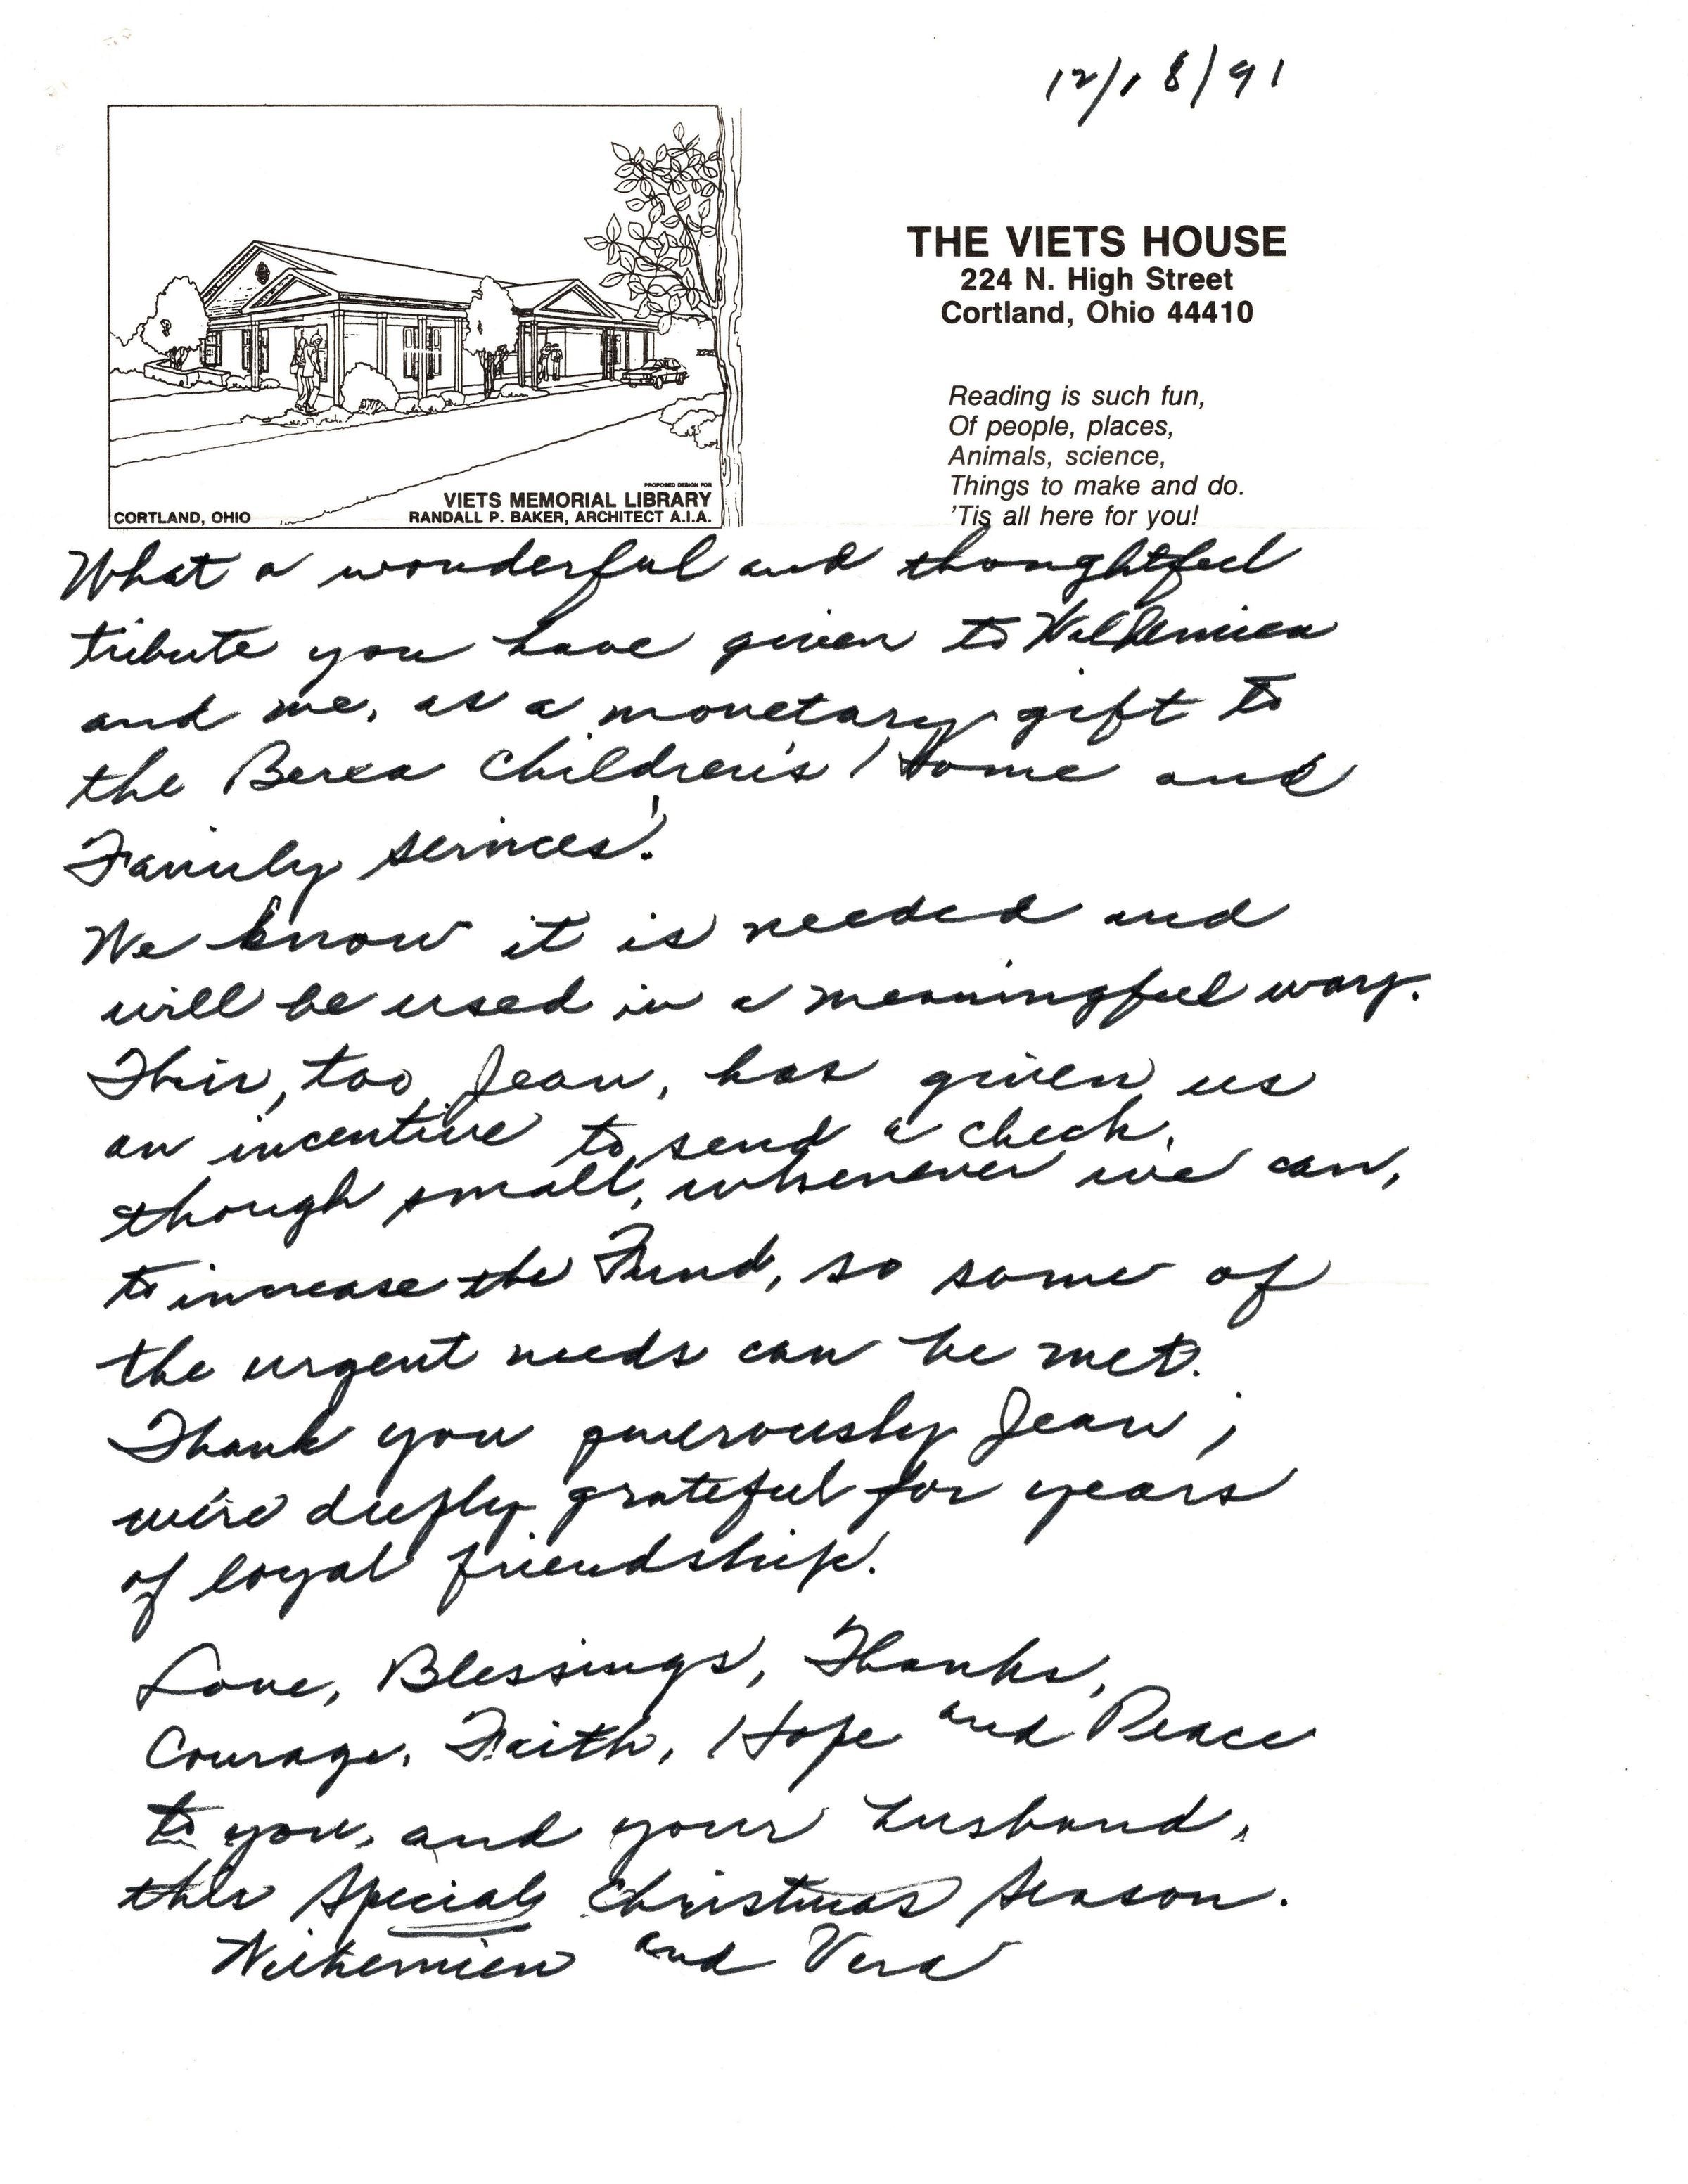 12/18/91
THE VIETS HOUSE
224 N. High Street
Cortland, Ohio 44410
Reading is such fun,
Of people, places,
Animals, science,
Things to make and do.
'Tis all here for you!
PROPOSED DESIGN FOR
VIETS MEMORIAL LIBRARY
CORTLAND, OHIO RANDALL P. BAKER, ARCHITECT A.I.A.
What a wonderful and thoughtful
tribute you have given to
and me, as a monetary gift to
the Berea Children's Home and
Family services!
We know it is needed and
will be used in a meaningful way.
This, too Jean, has given us
an incentive to send a check,
though small, whenever we can,
to increase the Fund, so some of
the urgent needs can be met.
Thank you generously Jean;
we're deeply grateful for years
of loyal friendship.
Love, Blessings, Thanks,
Courage, Faith, Hope and Peace
to you, and your husband,
this Special Christmas Season.
and Vera